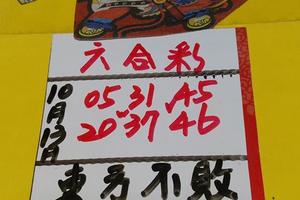 六合彩
10月13日
05 31 45
20 37 46
東方不敗